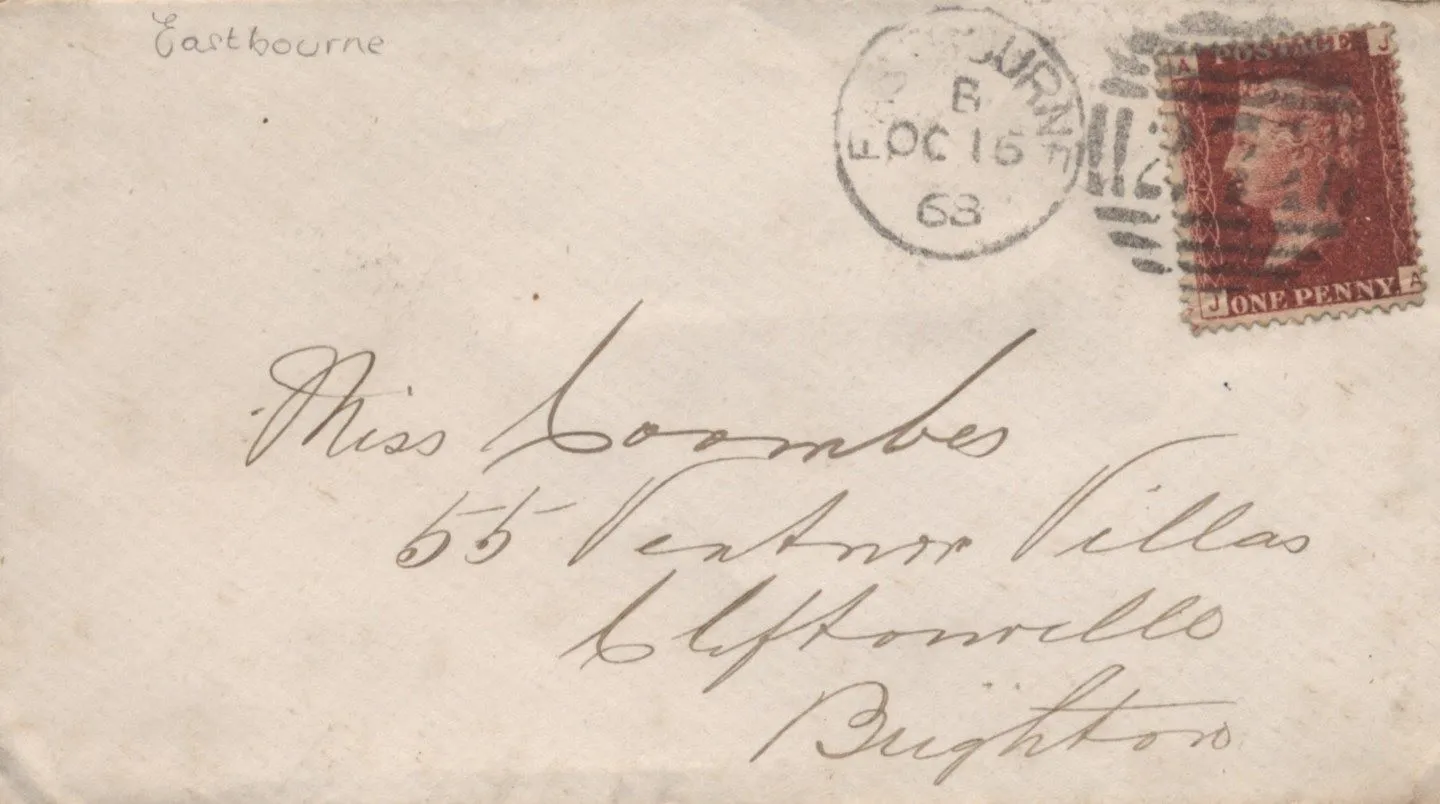 Eastbourne
EASTBOURNE
B
OC 16
68
A POSTAGE J
J ONE PENNY A
Miss Coombes
55 Ventnor Villas
Cliftonville
Brighton